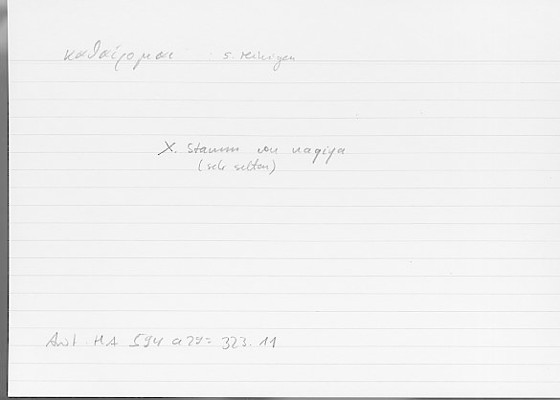 καθαίρομαι s. reinigen
X. Stamm von naqiya
(sehr selten)
Arist. HA 594 a 29 = 323.11